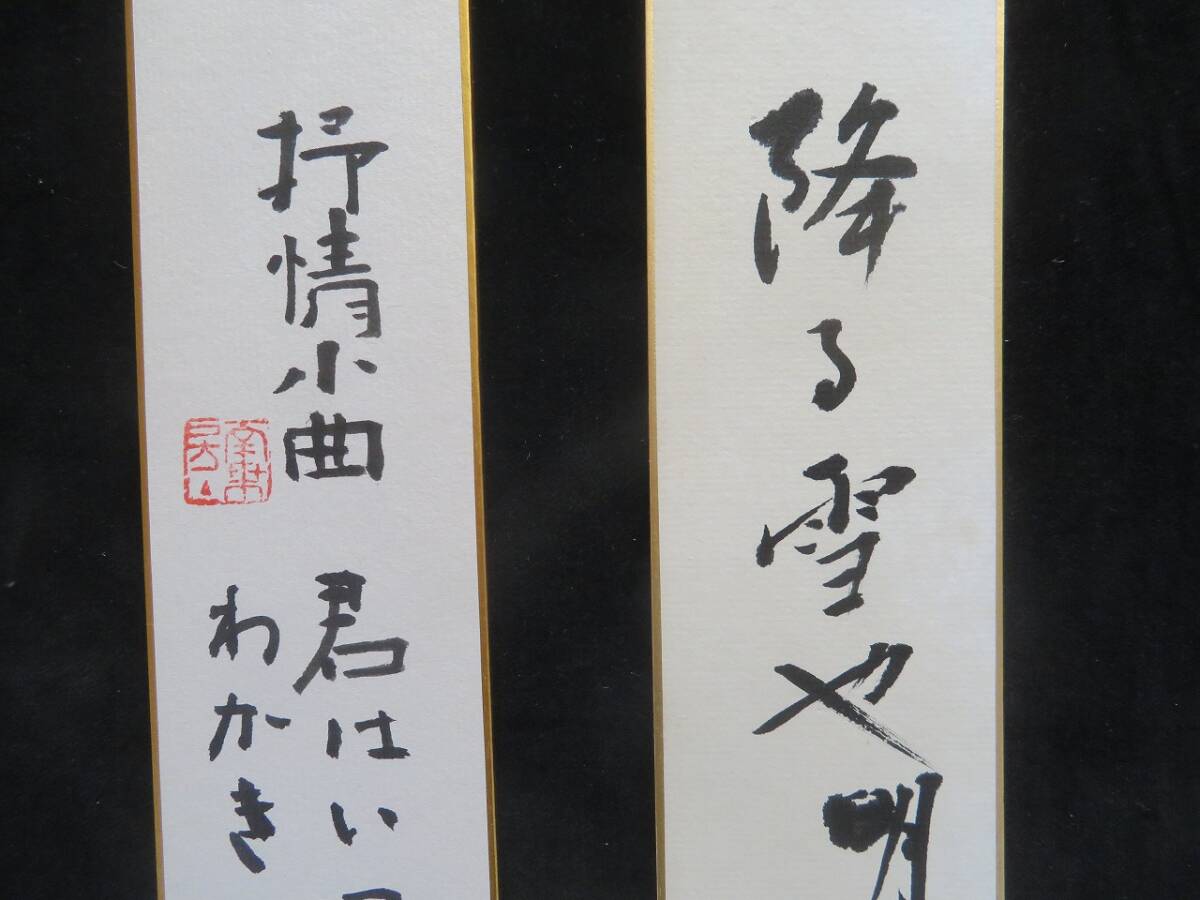 降る雪や明
抒情小曲 君はい
わかき